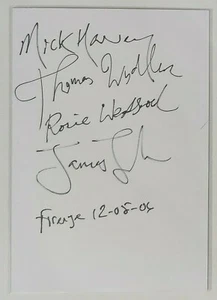 Mick Harvey
Thomas Wydler
Rosie Westbrook
James
Firenze 12-05-06